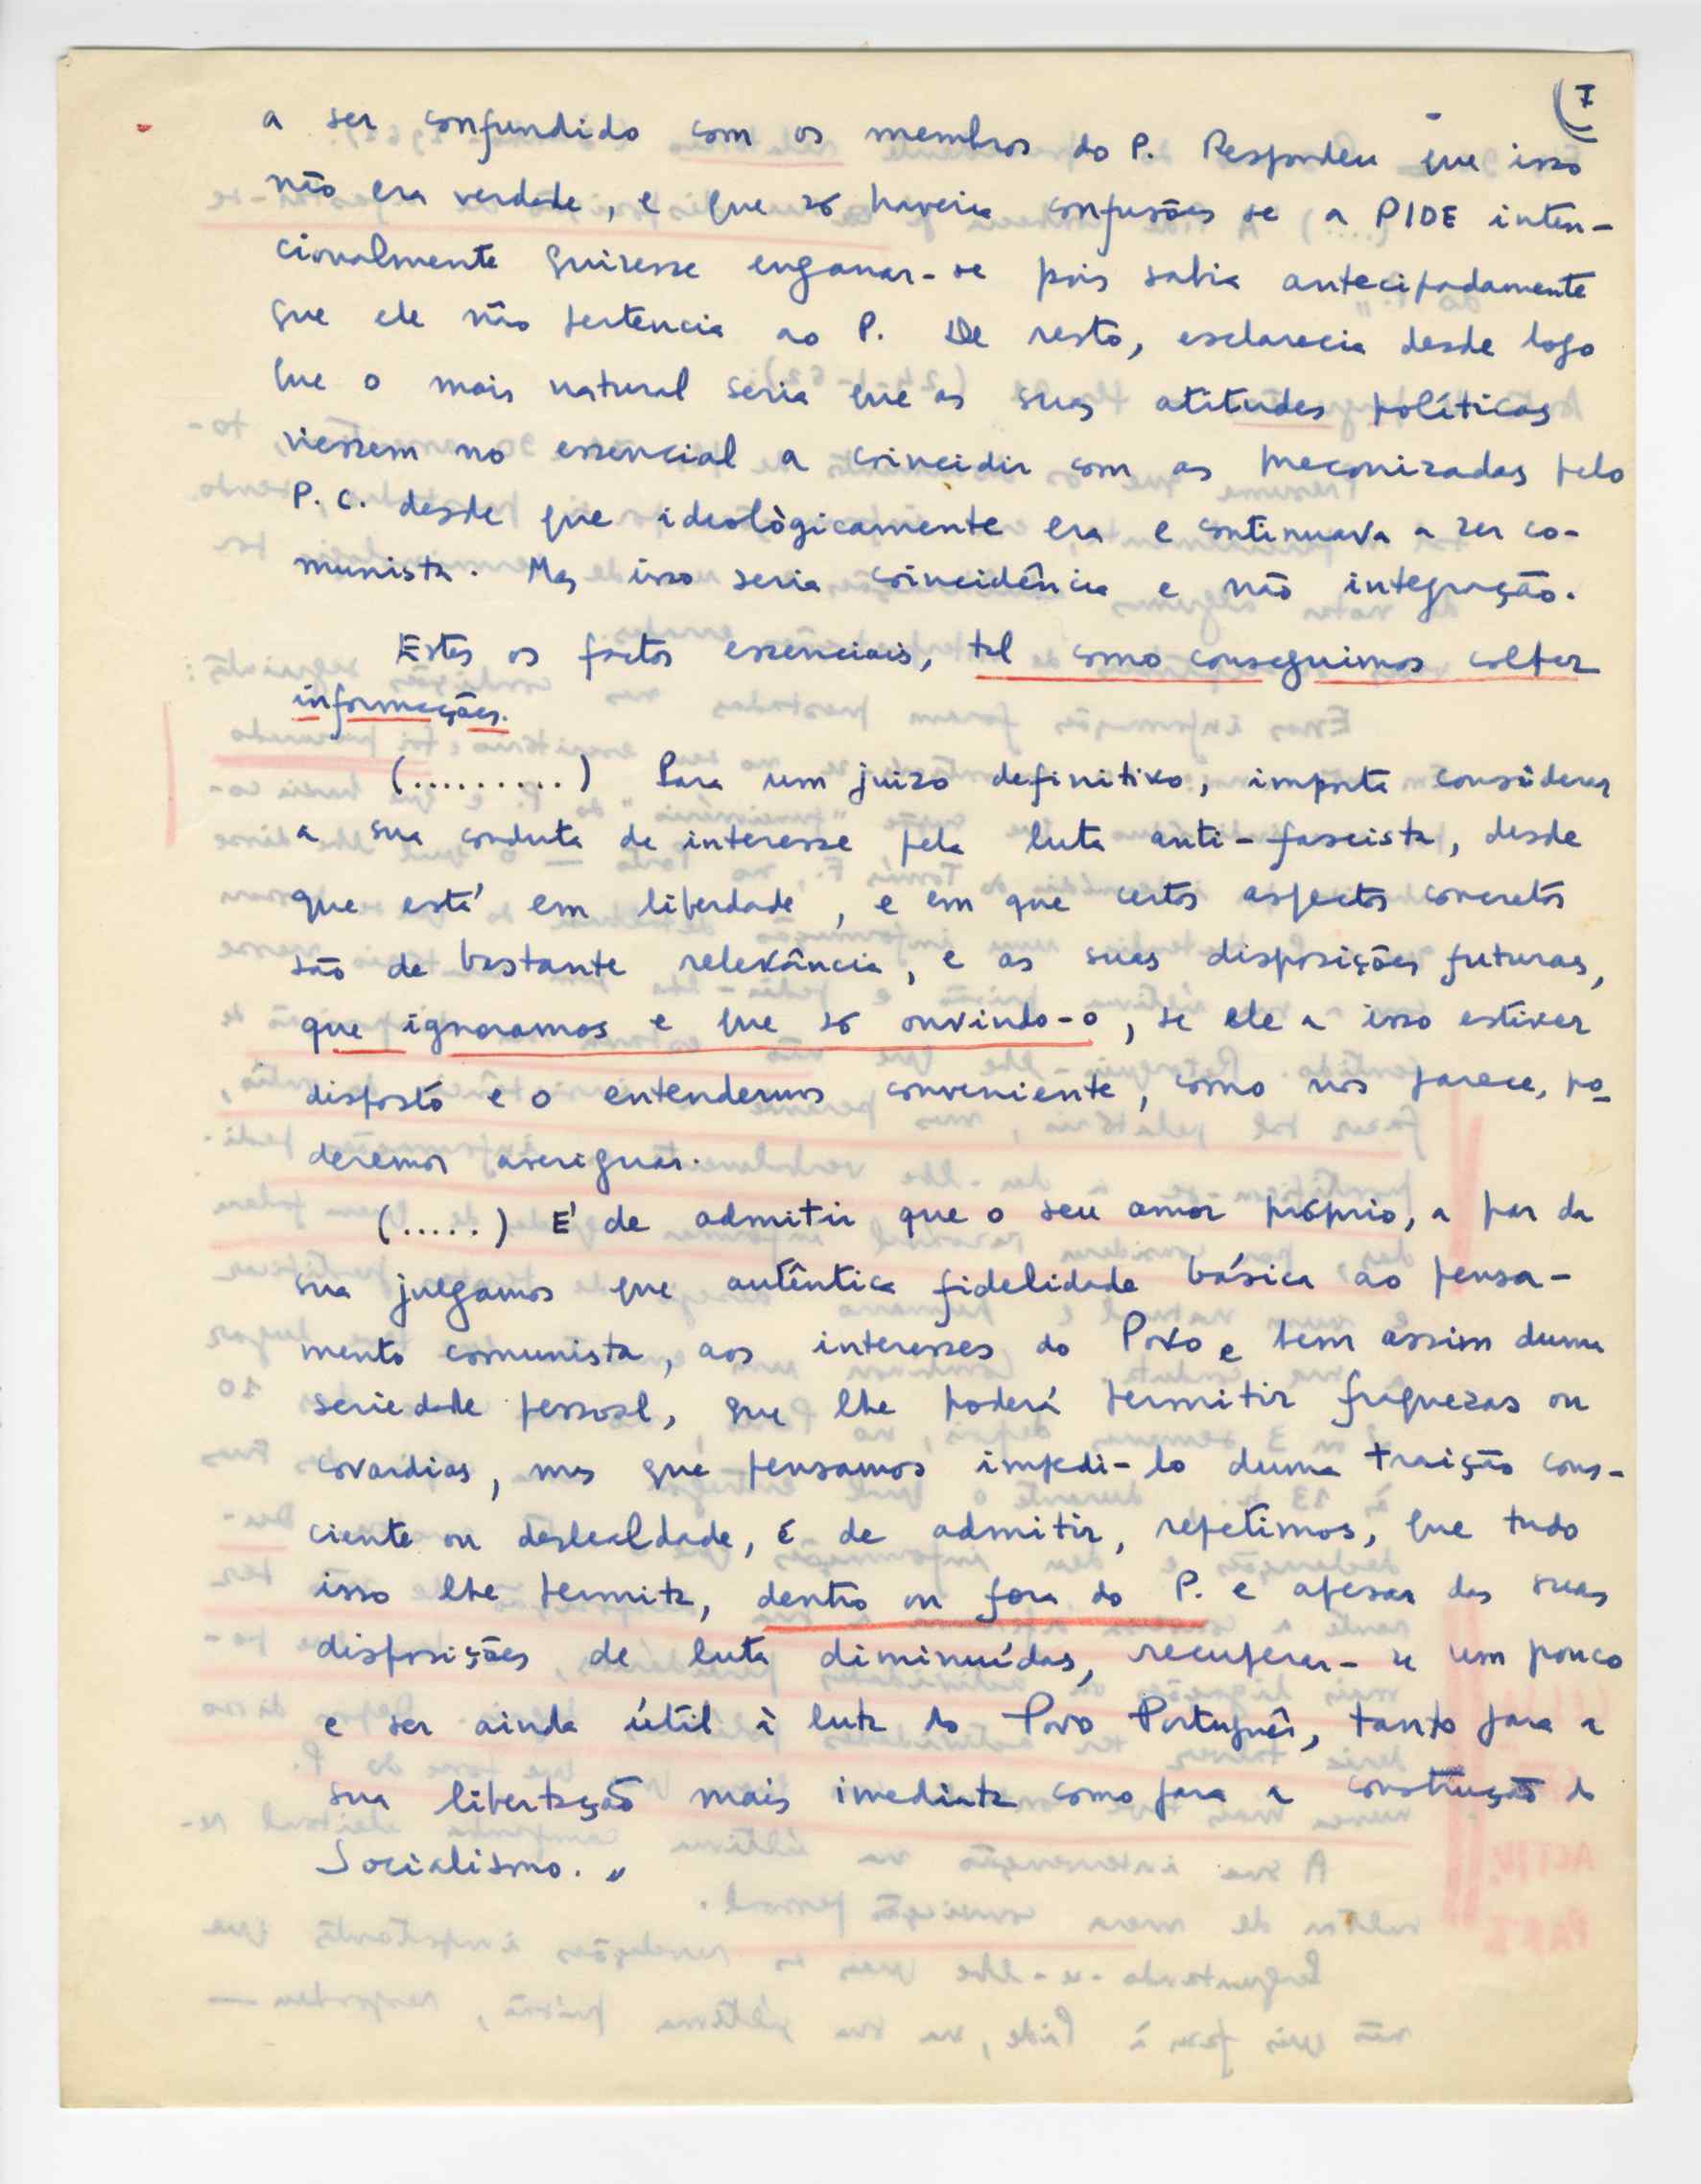 7
a ser confundido com os membros do P. Respondeu que isso
não era verdade, e que só haveria confusões se a PIDE inten-
cionalmente quizesse enganar-se pois sabia antecipadamente
que ele não pertencia ao P. De resto, esclarecia desde logo
que o mais natural seria que as suas atitudes políticas
viessem no essencial a coincidir com as preconizadas pelo
P. C. desde que ideològicamente era e continuava a ser co-
munista. Mas isso seria coincidência e não integração.
Estes os factos essenciais, tal como conseguimos colher
informações.
(.........) Para um juizo definitivo, importa considerar
a sua conduta de interesse pela luta anti-fascista, desde
que está em liberdade, e em que certos aspectos concretos
são de bastante relevância, e as suas disposições futuras,
que ignoramos e que só ouvindo-o, se ele a isso estiver
disposto e o entendermos conveniente, como nos parece, po-
deremos averiguar.
(.....) É de admitir que o seu amor próprio, a par da
sua julgamos que autêntica fidelidade básica ao pensa-
mento comunista, aos interesses do Povo e bem assim duma
seriedade pessoal, que lhe poderá permitir fraquezas ou
covardias, mas que pensamos impedi-lo duma traição cons-
ciente ou deslealdade, é de admitir, repetimos, que tudo
isso lhe permita, dentro ou fora do P. e apesar das suas
disposições de luta diminuídas, recuperar-se um pouco
e ser ainda útil à luta do Povo Português, tanto para a
sua libertação mais imediata como para a construção do
Socialismo."